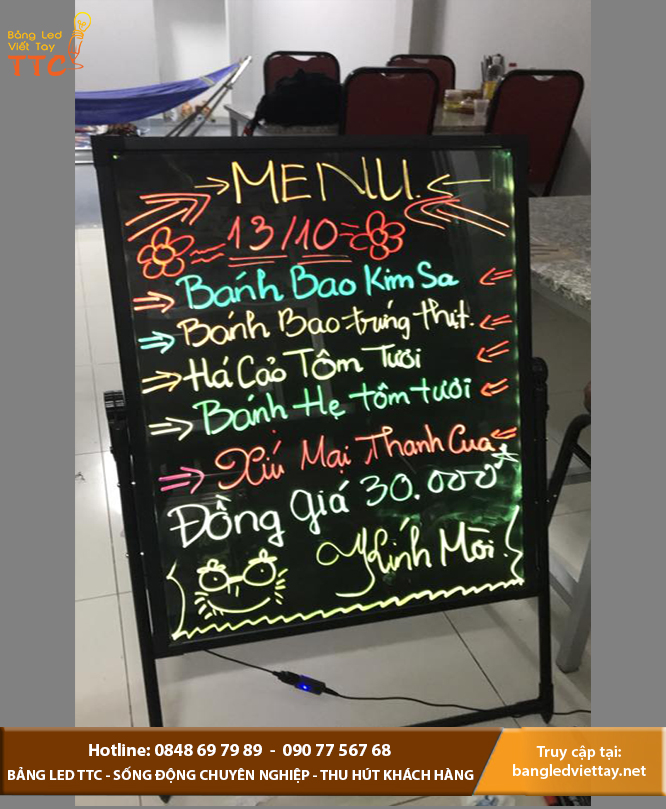 Bảng Led
Viết Tay
TTC
MENU.
13/10
Bánh Bao Kim Sa
Bánh Bao trứng thịt.
Há Cảo Tôm Tươi
Bánh Hẹ tôm tươi
Xíu Mại Thanh Cua
Đồng giá 30.000đ
Kính Mời.
Hotline: 0848 69 79 89 - 090 77 567 68
BẢNG LED TTC - SỐNG ĐỘNG CHUYÊN NGHIỆP - THU HÚT KHÁCH HÀNG
Truy cập tại:
bangledviettay.net